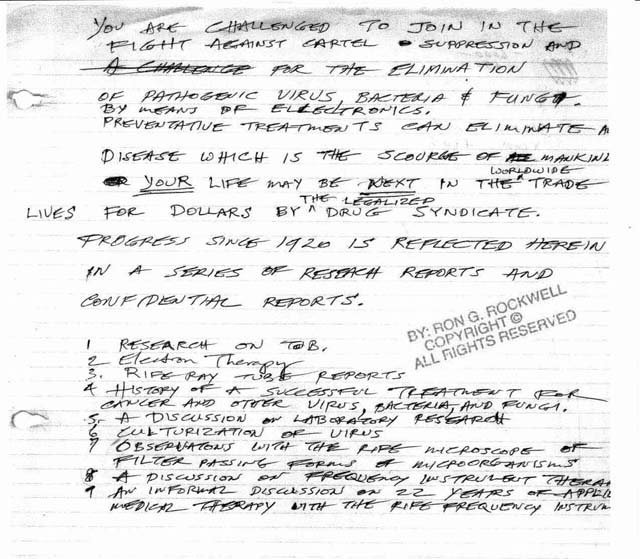 YOU ARE CHALLENGED TO JOIN IN THE
FIGHT AGAINST CARTEL SUPPRESSION AND
A CHALLENGE FOR THE ELIMINATION
OF PATHOGENIC VIRUS, BACTERIA & FUNGI.
BY MEANS OF ELLECTRONICS.
PREVENTATIVE TREATMENTS CAN ELIMINATE
DISEASE WHICH IS THE SCOURGE OF MANKIND
WORLDWIDE
YOUR LIFE MAY BE NEXT IN THE TRADE
THE LEGALIZED
LIVES FOR DOLLARS BY DRUG SYNDICATE.
PROGRESS SINCE 1920 IS REFLECTED HEREIN
IN A SERIES OF RESEACH REPORTS AND
CONFIDENTIAL REPORTS.
BY: RON G. ROCKWELL
COPYRIGHT ©
ALL RIGHTS RESERVED
1 RESEARCH ON TB.
2 Electron Therapy
3. RIFE RAY TUBE REPORTS
4 HISTORY OF A SUCCESSFUL TREATMENT FOR
CANCER AND OTHER VIRUS, BACTERIA, AND FUNGI.
5. A DISCUSSION ON LABORATORY RESEARCH
6 CULTURIZATION OF VIRUS
7 OBSERVATONS WITH THE RIFE MICROSCOPE OF
FILTER PASSING FORMS OF MICROORGANISMS
8 A DISCUSSION ON FREQUENCY INSTRUMENT THERA
9 AN INFORMAL DISCUSSION ON 22 YEARS OF APPLI
MEDICAL THERAPY WITH THE RIFE FREQUENCY INSTRUM